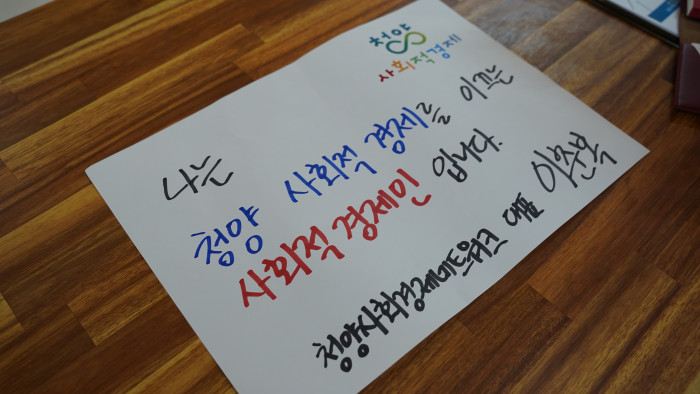 청양
사회적경제
나는
청양 사회적 경제를 이끄는
사회적 경제인 입니다.
청양사회경제네트워크 대표 이준복